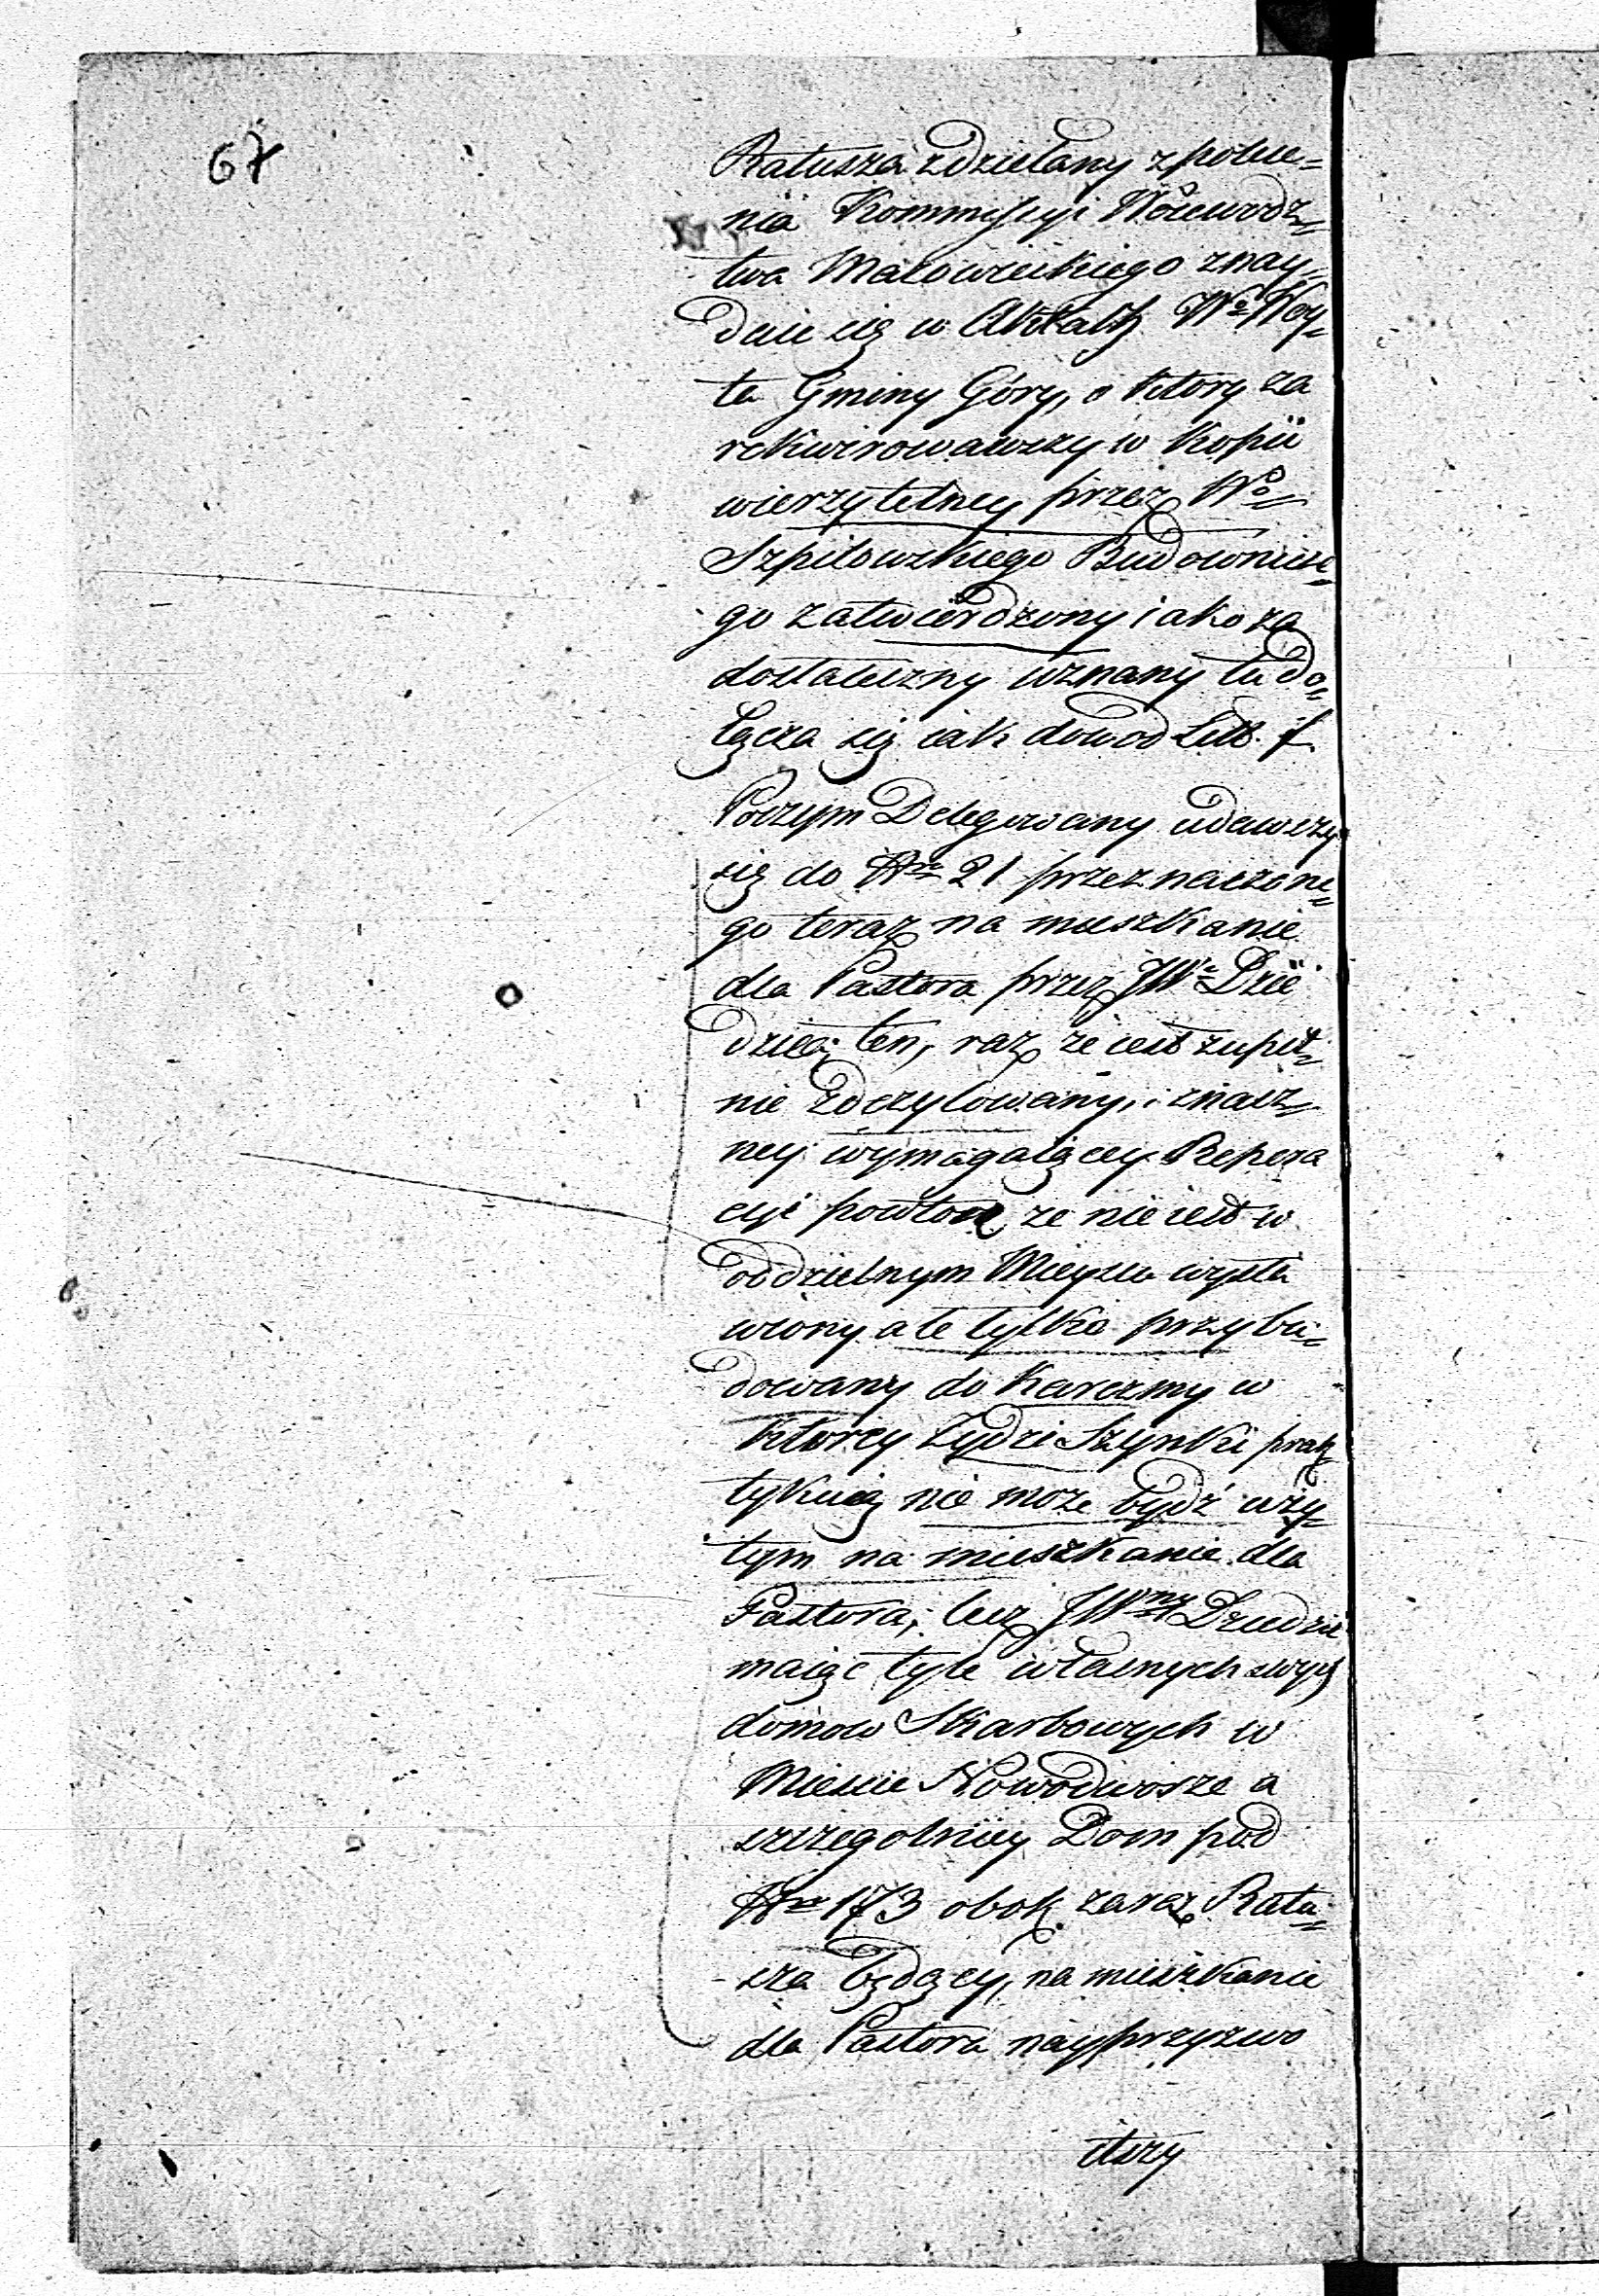 67
Ratusza zdziełany z polece=
nia Kommissyi Woiewodz=
twa Mazowieckiego znay=
duie się w Aktach Wo Woy=
ta Gminy Góry, o ktory za
rekwirowawszy w Kopii
wierzytelney przez Wo
Szpilowskiego Budownicze=
go zatwierdzony iako za
dostateczny uznany tu do=
łącza się iak dowod Litt. f.
Poczym Delegowany udawszy
się do Nro 21 przeznaczone=
go teraz na mieszkanie
dla Pastora przez JWo Dzie
dzica; ten, raz że iest zupeł=
nie zdezylowany, i znacz=
ney wymagaiącey Repera
cyi powtore, że nie iest w
oddzielnym Mieyscu wysta
wiony ale tylko przybu=
dowany do Karczmy w
ktorey Żydzi Szynki prak
tykuią nie może bydź uży=
tym na mieszkanie dla
Pastora; lecz JWny Dziedzic
maiąc tyle własnych swych
domow Skarbowych w
Mieście Nowodworze a
szczegolniey Dom pod
Nro 173 obok zaraz Ratu=
sza będący, na mieszkanie
dla Pastora nayprzyzwo
itszy